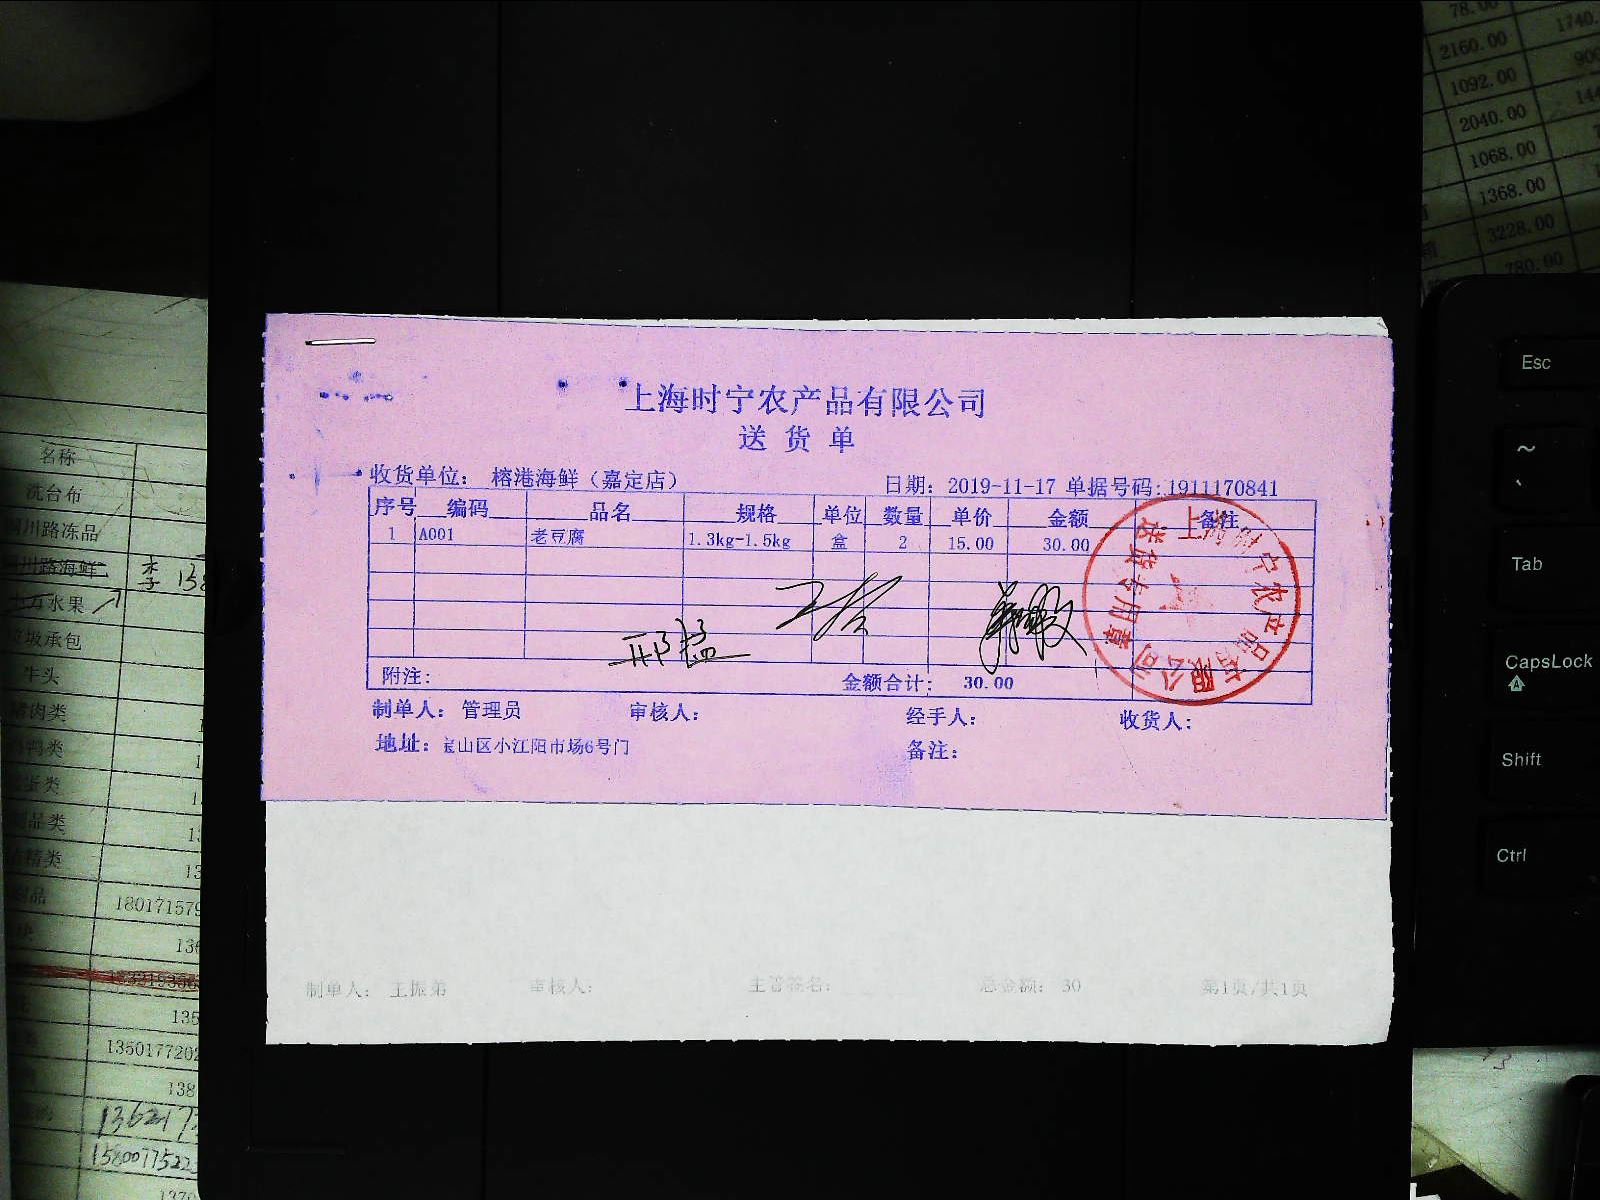 上海时宁农产品有限公司
送 货 单
收货单位： 榕港海鲜（嘉定店） 日期： 2019-11-17 单据号码: 1911170841
序号 编码 品名 规格 单位 数量 单价 金额 备注
1 A001 老豆腐 1.3kg-1.5kg 盒 2 15.00 30.00
附注： 金额合计： 30.00
制单人： 管理员 审核人： 经手人： 收货人：
地址： 宝山区小江阳市场6号门 备注：
上海时宁农产品有限公司
送货专用章
制单人： 王振弟 审核人： 主管签名： 总金额： 30 第1页/共1页
名称
洗台布
川路冻品
川路海鲜
水果
承包
牛头
肉类
鸭类
蛋类
品类
精类
品
180171579
135
1350177202
138
1580077522
78.00
2160.00 1740.
1092.00
2040.00
1068.00
1368.00
3228.00
780.00
Esc
~
Tab
CapsLock
A
Shift
Ctrl